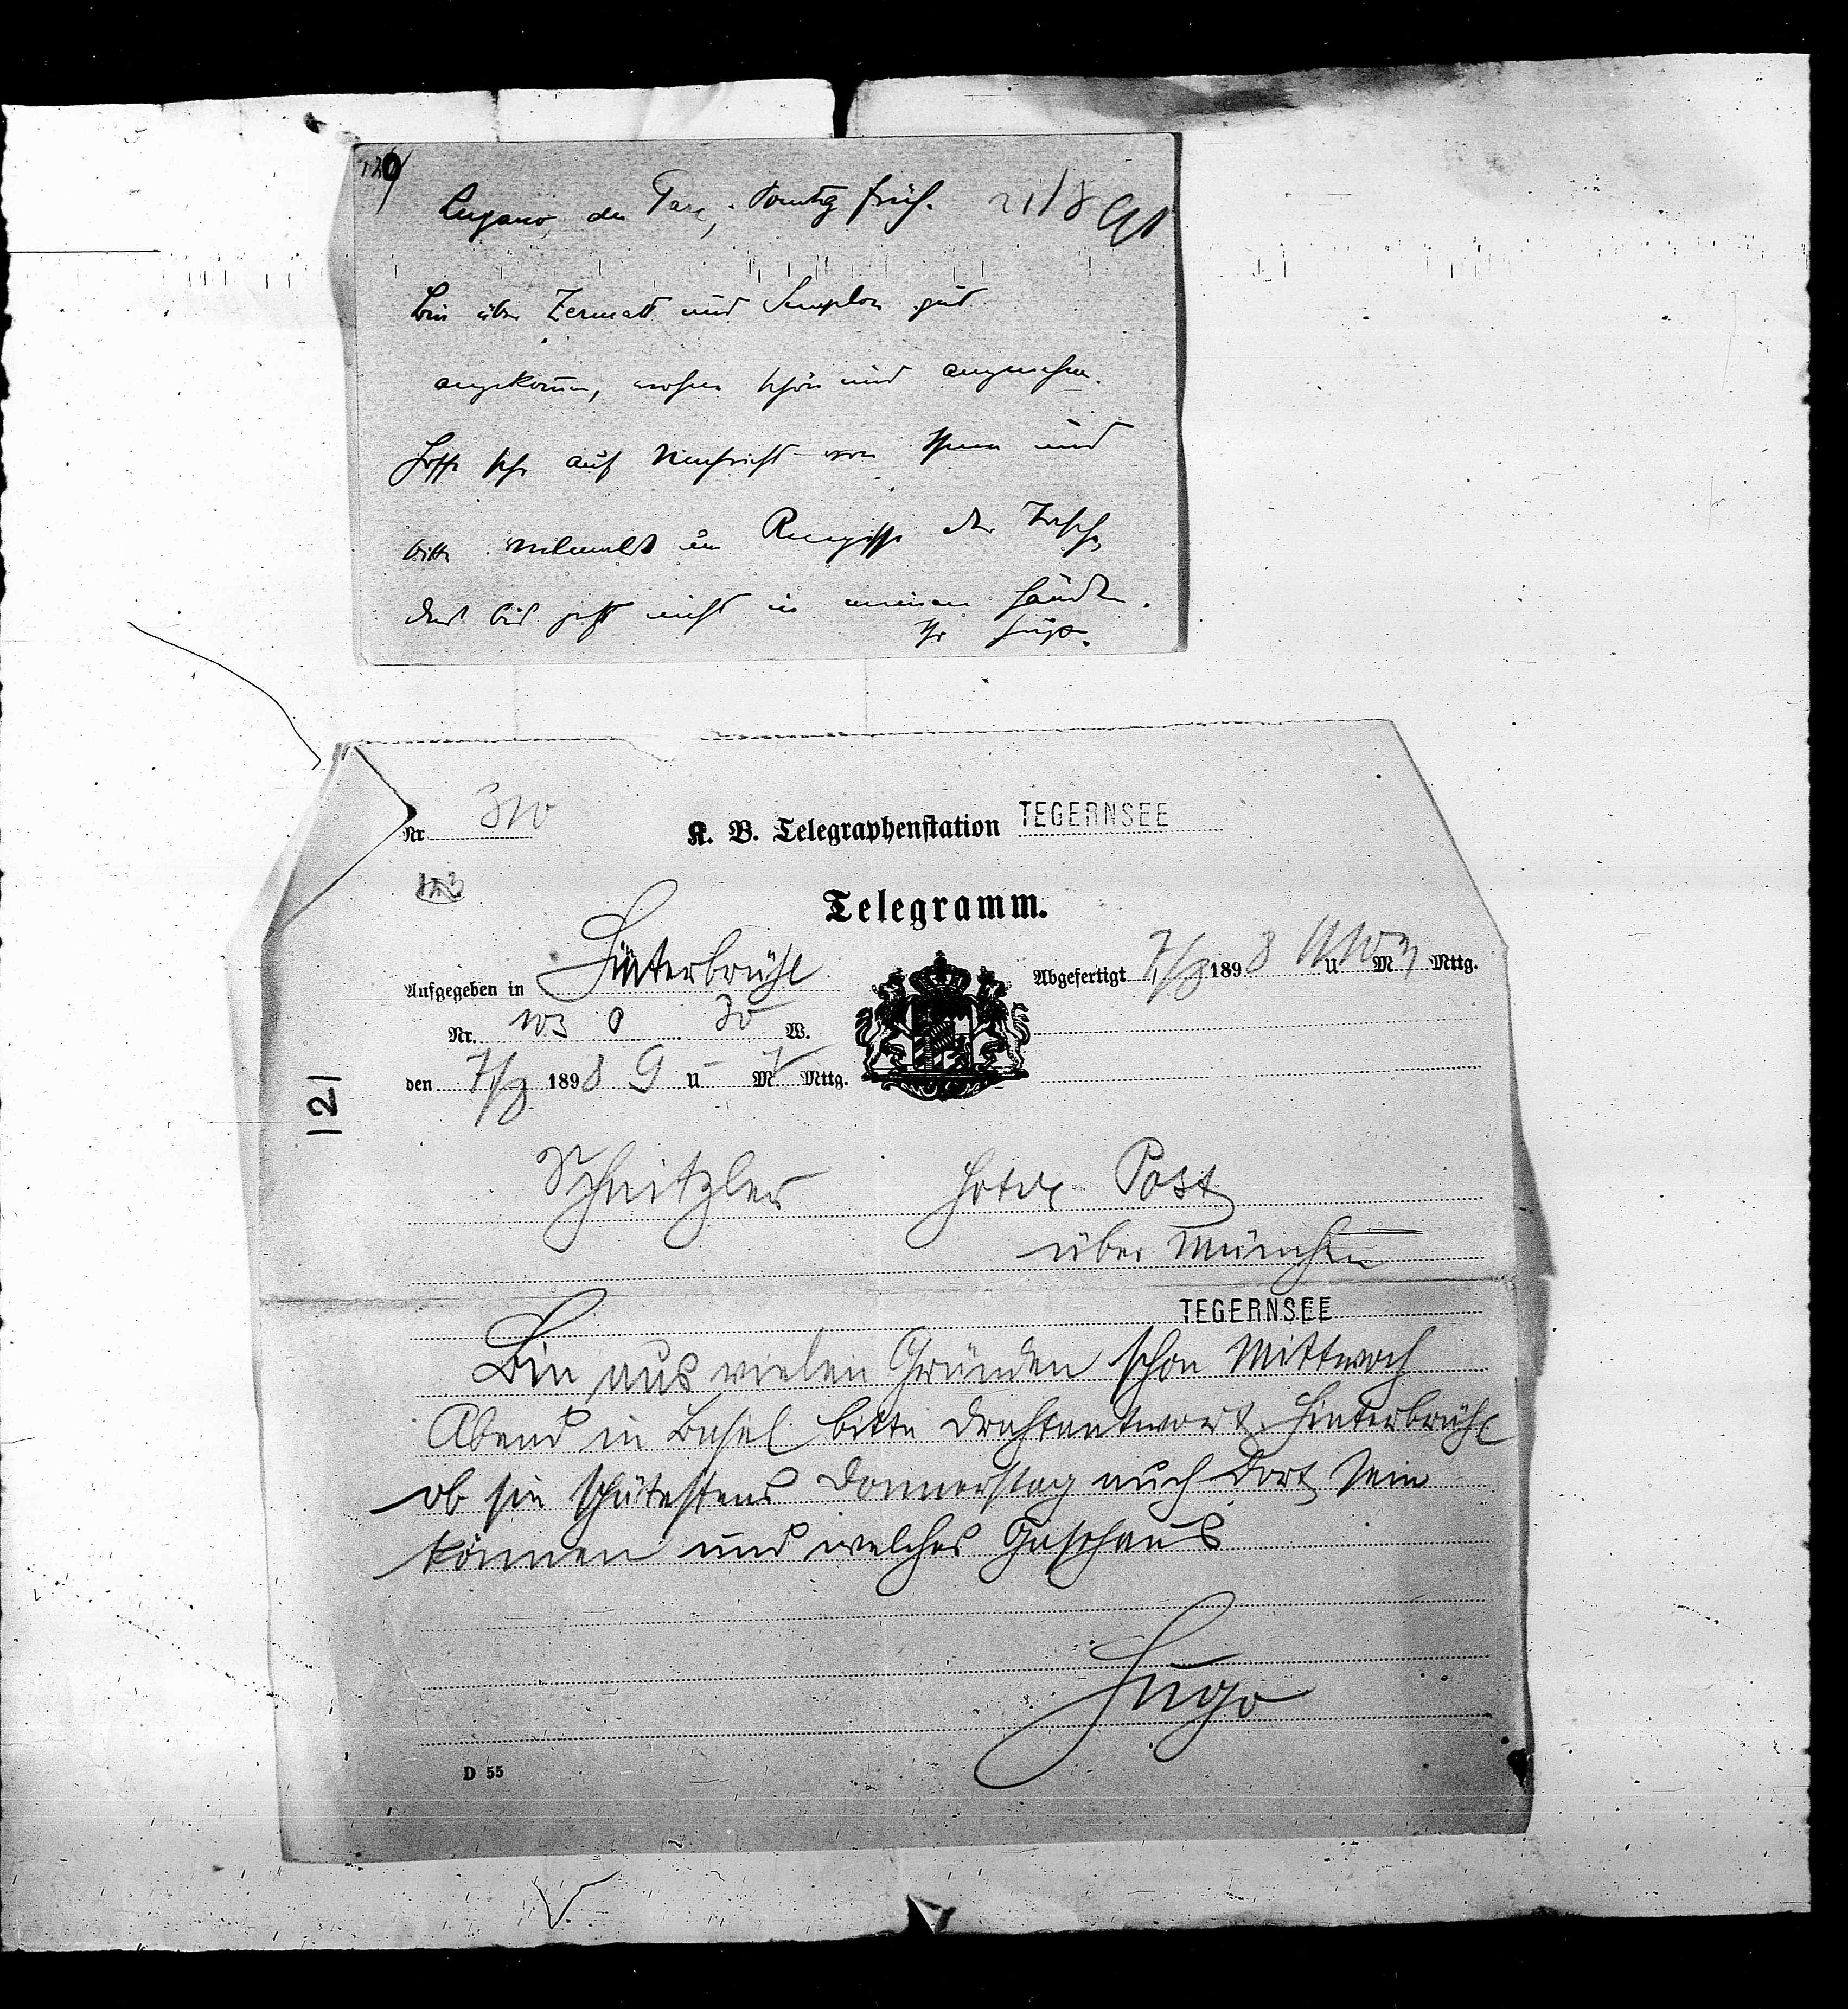 120
Lugano, du Parc, Sonntag früh. 21/8 98
bin über Zermatt und Simplon gut
angekom̅en, wohne schön und angenehm.
Hoffe sehr auf Nachricht von Ihnen und
bitte vielmals um Recepisse der Tasche,
das bis jetzt nicht in meinen Händen.
Ihr Hugo.
Nr 310
K. B. Telegraphenstation TEGERNSEE
Telegramm.
Aufgegeben in Hinterbrühl
Abgefertigt 7/8 1898 U M Mttg.
Nr. 103 0 30 W.
den 7/8 1898 9 U – M Mttg.
121
Schnitzler Hotel Post
über München
TEGERNSEE
Bin aus vielen Gründen schon Mittwoch
Abend in Basel bitte Drahtantwort Hinterbrühl
ob sie spätestens Donnerstag auch dort sein
können und welches Gasthaus
Hugo
D 55